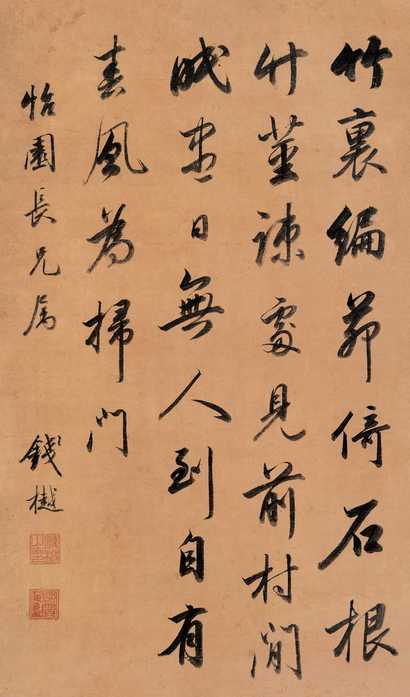 竹裏編茆倚石根
竹莖疎處見前村閒
眠盡日無人到自有
春風為掃門
怡園長兄屬
錢樾